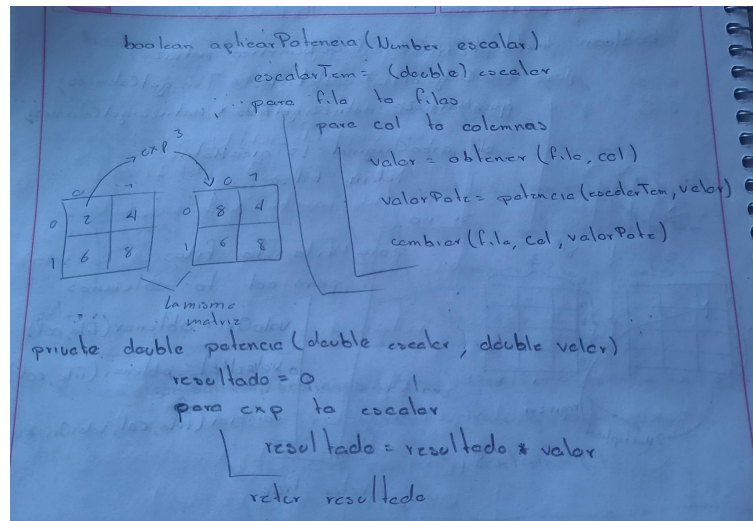 boolean aplicarPotencia (Number escalar)
escalarTem = (double) escalar
para fila to filas
para col to columnas
valor = obtener (fila, col)
valorPote = potencia (escalarTem, valor)
cambiar (fila, col, valorPote)
exp 3
0 1
0 2 4
1 6 8
0 1
0 8 4
1 6 8
La misma
matriz
private double potencia (double escalar, double valor)
resultado = 0
para exp to escalar
resultado = resultado * valor
reter resultado